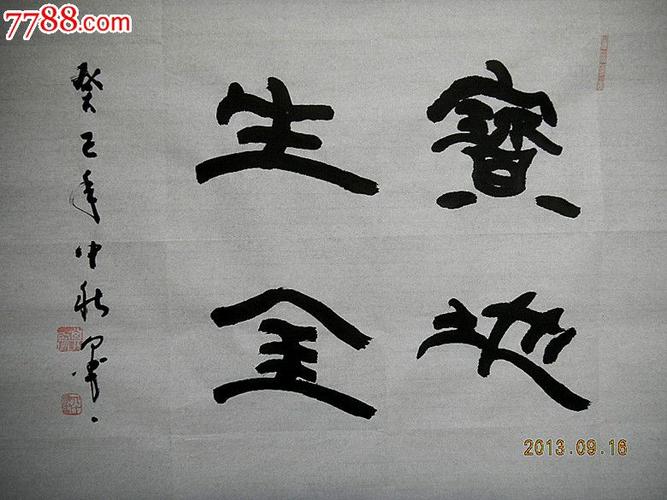 7788.com
寶地
生金
癸巳年中秋
2013.09.16